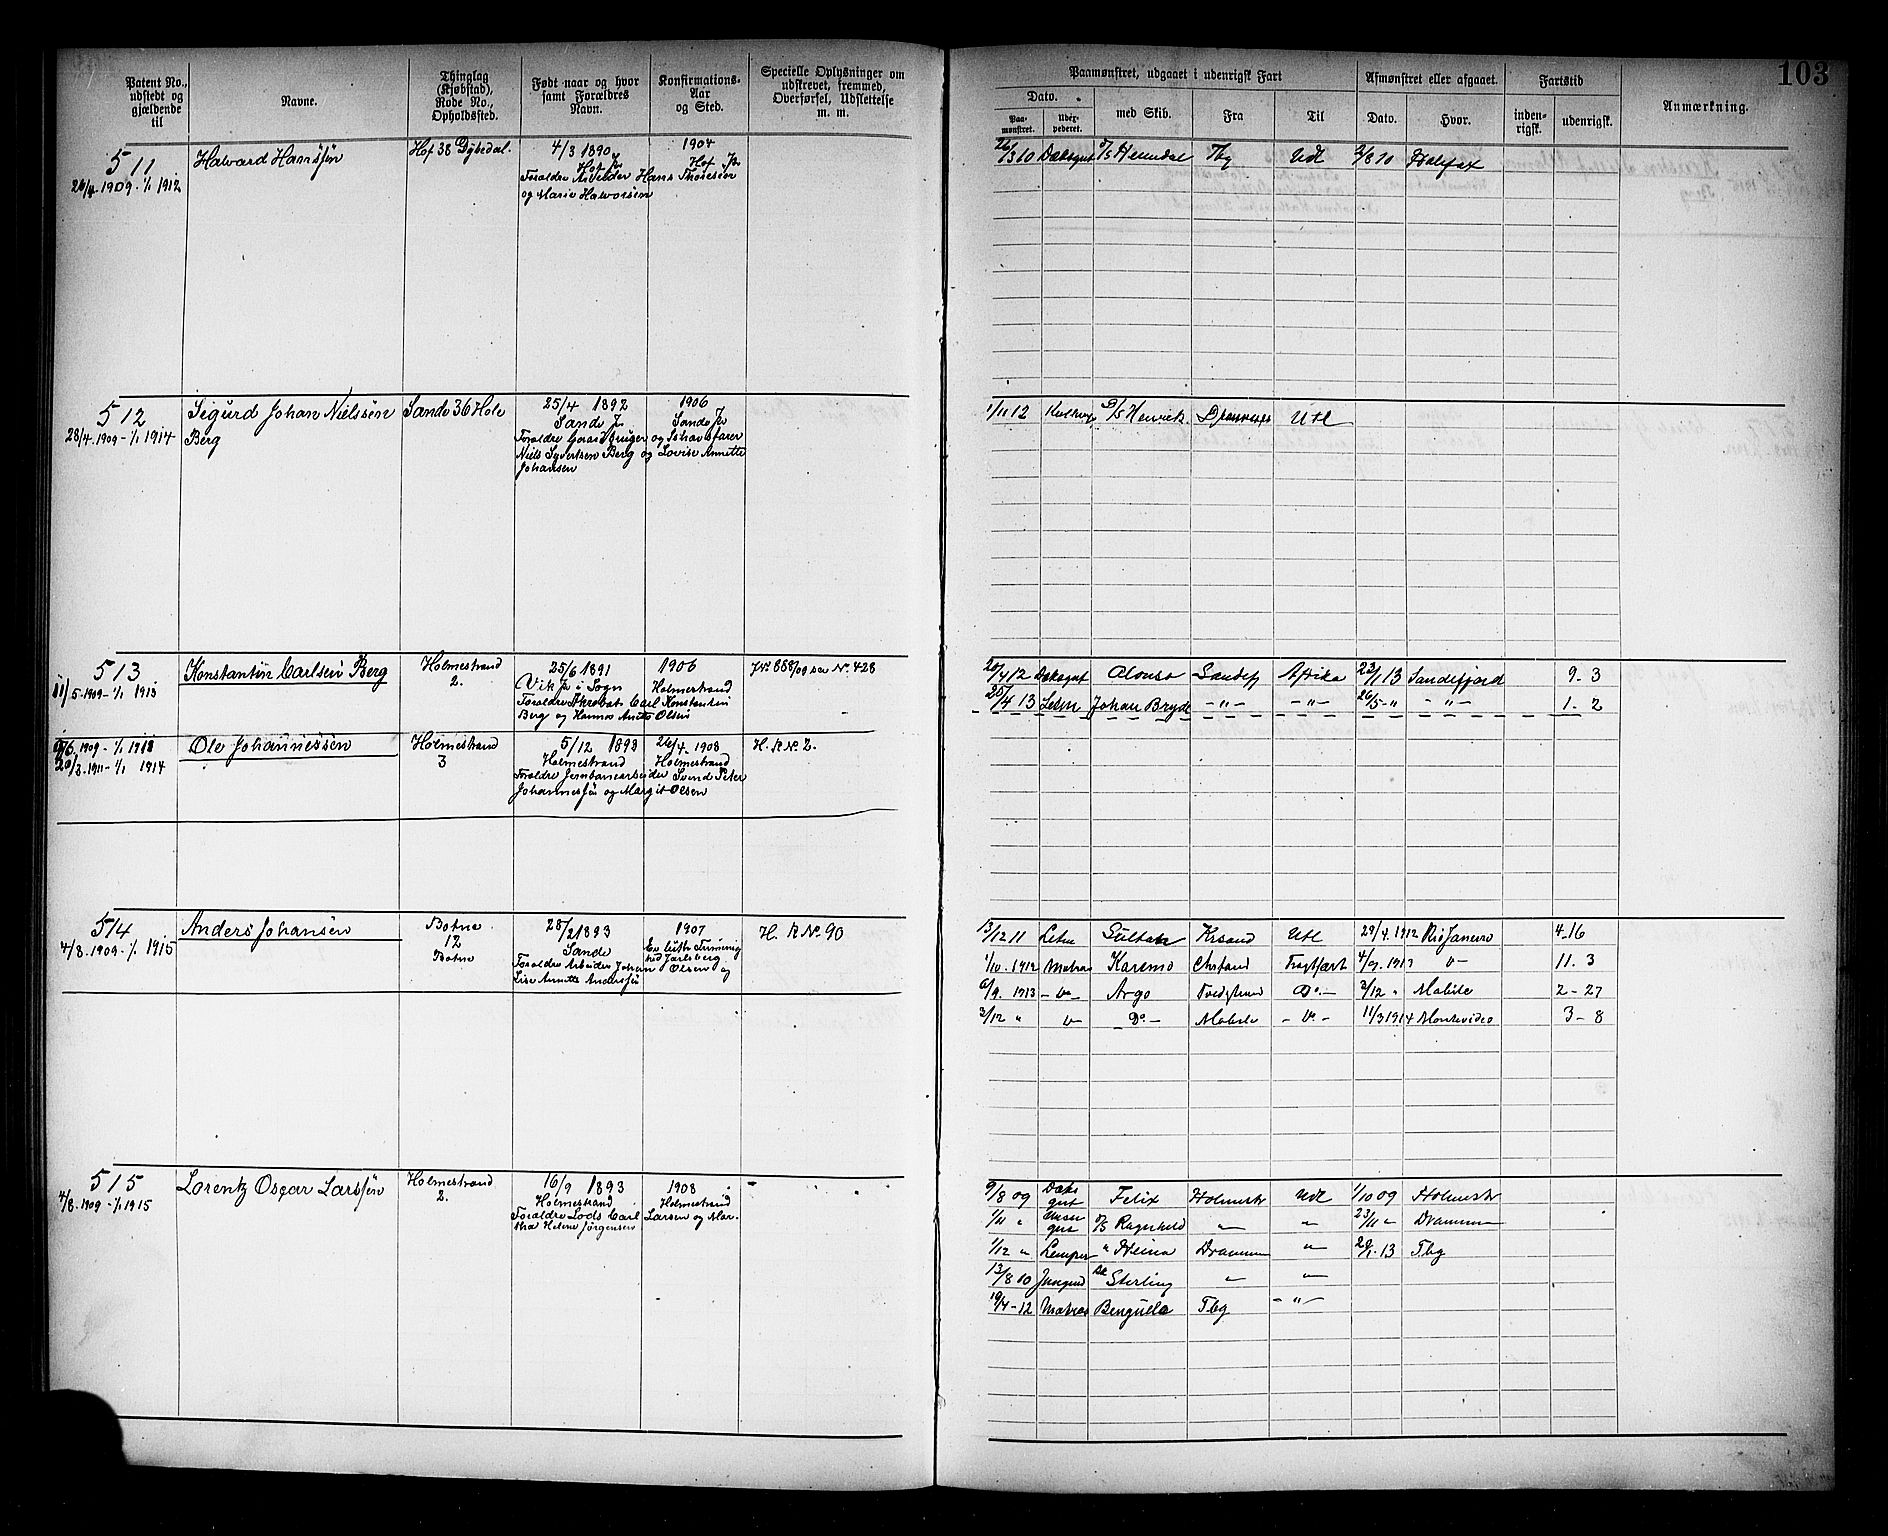 103
Patent No., udstedt og gjældende til
Navne.
Thinglag (Kjøbstad), Rode No., Opholdssted.
Født naar og hvor samt Forældres Navn.
Konfirmations-Aar og Sted.
Specielle Oplysninger om udskrevet, fremmed, Overførsel, Udslettelse m. m.
Paamønstret, udgaaet i udenrigsk Fart
Dato.
Paa-mønstret.
med Skib.
Fra
Til
Afmønstret eller afgaaet.
Dato.
Hvor.
Fartstid
inden-rigsk.
udenrigsk.
Anmærkning.
511 Halvard Hanssen Hof 38 4/3 1890 1904
1909 - 1/1 1912 Hof Hof
Forældre Hans Thoresen
og Marie Halvorsen
26/3 10 Tbg Udl 2/8 10 Halifax
512 Sigurd Johan Nielssen Sande 36 Hole 25/4 1892 1906
28/4 1909 - 1/1 1914 Berg Sande Sande
Forældre og
Niels Syvertsen Berg og Lovise Annette
Johansen
1/11 12 Henrik Utl
513 Konstantin Carlsen Berg Holmestrand 25/6 1891 1906 No. 428
11/5 1909 - 1/1 1913 2. Vik i Sogn Holmestrand
Forældre Carl Konstantin
Berg og Olsen
20/4 12 Alonso Sandef Afrika 23/1 13 Sandefjord 9 - 3
25/4 13 Letm Johan Bryde - " - - " - 26/5 - " - " - 1 - 2
1909 - 1/1 1913 Ole Johannessen Holmestrand 5/12 1893 26/4 1908 H. R No. 2.
20/3 1911 - 1/1 1914 3 Holmestrand Holmestrand
Forældre Jernbanearbeider Svend Peter
Johannessen og Margit Olsen
514 Anders Johansen Botne 28/2 1893 1907 H. R No. 90
4/8 1909 - 1/1 1915 12 Sande
Botne
Forældre Arbeider Johan Olsen og
Lise Annette Anderssen
13/12 11 Letm Sultan Krsand Utl 29/4 1912 Rio Janeiro 4-16
1/10 1912 Matros Karemo Chrsand Fragtfart 4/9 1913 11. 3
6/9 1913 Argo Do. 2/12 " Mobile 2 - 27
3/12 " Do. Mobile 11/3 1914 Montevideo 3 - 8
515 Lorentz Oscar Larssen Holmestrand 16/9 1893 1908
4/8 1909 - 1/1 1915 2. Holmestrand Holmestrand
Forældre Lods Carl Larsen og Mar-
tha Helene Jørgensen
9/8 09 Felix Holmestr Udl 1/10 09 Holmestr
1/11 " Ragnhild " " 23/11 " Drammen
1/12 " Drammen " 13 Tbg
13/8 10 Jungmd Sterling " "
19/4 - 12 Matros Benguela Tbg - " -